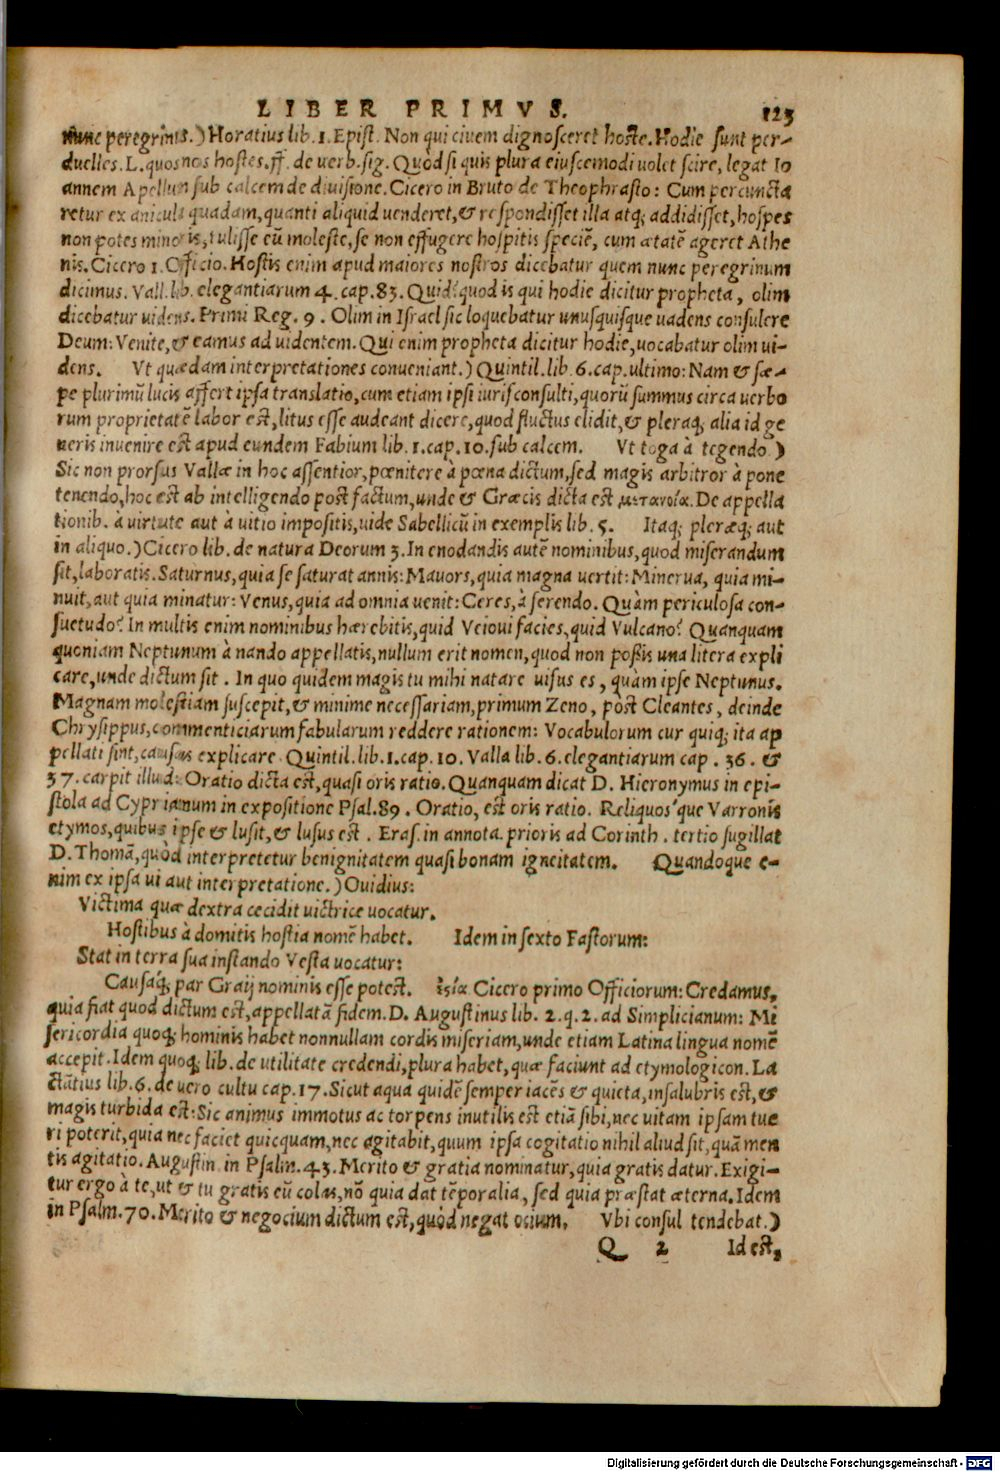 LIBER PRIMVS. 123
nunc peregrinus.) Horatius lib. 1. Epist. Non qui ciuem dignosceret hoste. Hodie sunt per-
duelles. L. quos nos hostes. ff. de verb. sig. Quòd si quis plura eiuscemodi uolet scire, legat Io
annem Apellum sub calcem de diuisione. Cicero in Bruto de Theophrasto: Cum percuncta
retur ex anicula quadam, quanti aliquid uenderet, & respondisset illa atq; addidisset, hospes
non potes minoris, tulisse eũ moleste, se non effugere hospitis speciẽ, cum ætatẽ ageret Athe
nis. Cicero 1. Officio. Hostis enim apud maiores nostros dicebatur quem nunc peregrinum
dicimus. Vall. lib. elegantiarum 4. cap. 83. Quid? quod is qui hodie dicitur propheta, olim
dicebatur uidens. Primi Reg. 9. Olim in Israel sic loquebatur unusquisque uadens consulere
Deum: Venite, & eamus ad uidentem. Qui enim propheta dicitur hodie, uocabatur olim ui-
dens. Vt quædam interpretationes conueniant.) Quintil. lib. 6. cap. ultimo: Nam & sæ-
pe plurimũ lucis affert ipsa translatio, cum etiam ipsi iurisconsulti, quorũ summus circa uerbo
rum proprietatẽ labor est, litus esse audeant dicere, quod fluctus elidit, & pleraq; alia id ge
neris inuenire est apud eundem Fabium lib. 1. cap. 10. sub calcem. Vt toga à tegendo.)
Sic non prorsus Vallæ in hoc assentior, pœnitere à pœna dictum, sed magis arbitror à pone
tenendo, hoc est ab intelligendo post factum, unde & Græcis dicta est μετανοία. De appella
tionib. à virtute aut à uitio impositis, uide Sabellicũ in exemplis lib. 5. Itaq; pleræq; aut
in aliquo.) Cicero lib. de natura Deorum 3. In enodandis autẽ nominibus, quod miserandum
sit, laboratis. Saturnus, quia se saturat annis: Mauors, quia magna uertit: Minerua, quia mi-
nuit, aut quia minatur: Venus, quia ad omnia uenit: Ceres, à serendo. Quàm periculosa con-
suetudo? In multis enim nominibus hærebitis, quid Veioui facies, quid Vulcano? Quanquam
quoniam Neptunum à nando appellatis, nullum erit nomen, quod non poßis una litera expli
care, unde dictum sit. In quo quidem magis tu mihi natare uisus es, quàm ipse Neptunus.
Magnam molestiam suscepit, & minime necessariam, primum Zeno, pòst Cleantes, deinde
Chrysippus, commenticiarum fabularum reddere rationem: Vocabulorum cur quiq; ita ap
pellati sint, causas explicare. Quintil. lib. 1. cap. 10. Valla lib. 6. elegantiarum cap. 36. &
37. carpit illud: Oratio dicta est, quasi oris ratio. Quanquam dicat D. Hieronymus in epi-
stola ad Cyprianum in expositione Psal. 89. Oratio, est oris ratio. Reliquos'que Varronis
etymos, quibus ipse & lusit, & lusus est. Eras. in annota. prioris ad Corinth. tertio sugillat
D. Thomã, quòd interpretetur benignitatem quasi bonam igneitatem. Quandoque e-
nim ex ipsa ui aut interpretatione.) Ouidius:
Victima quæ dextra cecidit uictrice uocatur.
Hostibus à domitis hostia nomẽ habet. Idem in sexto Fastorum:
Stat in terra sua instando Vesta uocatur:
Causáq; par Graij nominis esse potest. ἱςία. Cicero primo Officiorum: Credamus,
quia fiat quod dictum est, appellatã fidem. D. Augustinus lib. 2. q. 2. ad Simplicianum: Mi
sericordia quoq; hominis habet nonnullam cordis miseriam, unde etiam Latina lingua nomẽ
accepit. Idem quoq; lib. de utilitate credendi, plura habet, quæ faciunt ad etymologicon. La
ctãtius lib. 6. de uero cultu cap. 17. Sicut aqua quidẽ semper iacẽs & quieta, insalubris est, &
magis turbida est: Sic animus immotus ac torpens inutilis est etiã sibi, nec uitam ipsam tue
ri poterit, quia nec faciet quicquam, nec agitabit, quum ipsa cogitatio nihil aliud sit, quã men
tis agitatio. Augustin. in Psalm. 43. Merito & gratia nominatur, quia gratis datur. Exigi-
tur ergo à te, ut & tu gratis eũ colas, nõ quia dat tẽporalia, sed quia præstat æterna. Idem
in Psalm. 70. Merito & negocium dictum est, quòd negat ocium. Vbi consul tendebat.)
Q 2 Id est,
Digitalisierung gefördert durch die Deutsche Forschungsgemeinschaft - DFG